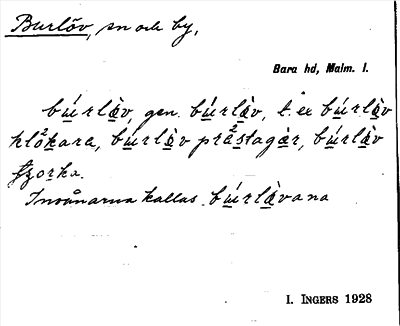 Burlöv, sn och by,
Bara hd, Malm. l.
búrlàv, gen. búrlàv, t. ex búrlàv
klǻkara, búrlàv prästagàr, búrlàv
Invånarna kallas búrlàvana
I. INGERS 1928